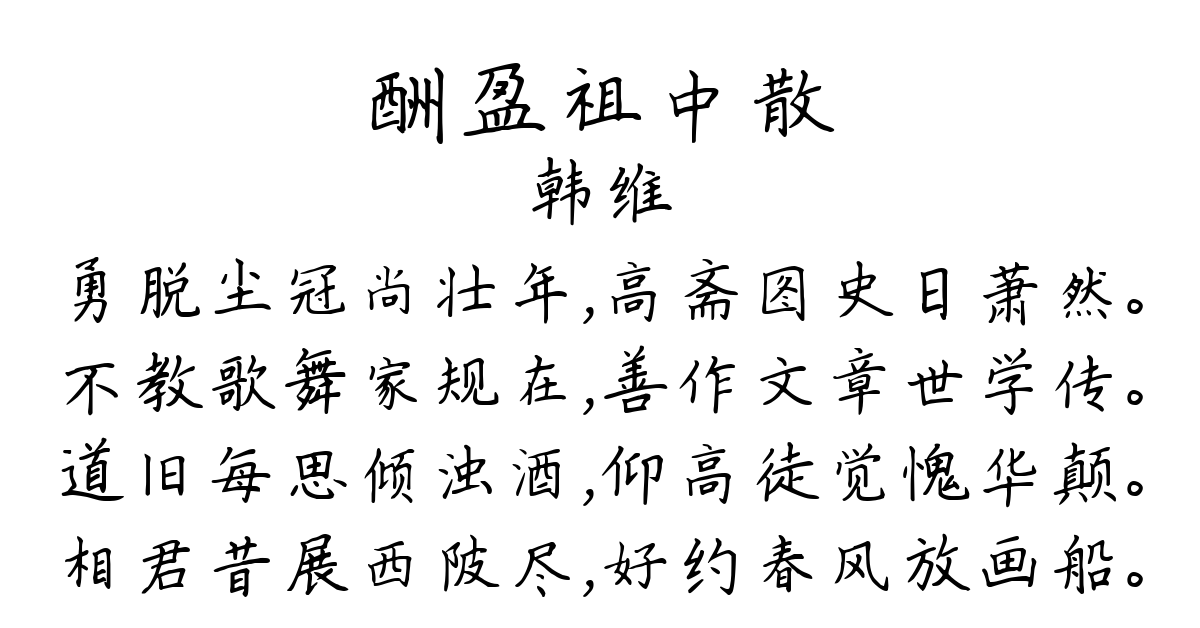 酬盈祖中散
韩维
勇脱尘冠尚壮年,高斋图史日萧然。
不教歌舞家规在,善作文章世学传。
道旧每思倾浊酒,仰高徒觉愧华颠。
相君昔展西陂尽,好约春风放画船。